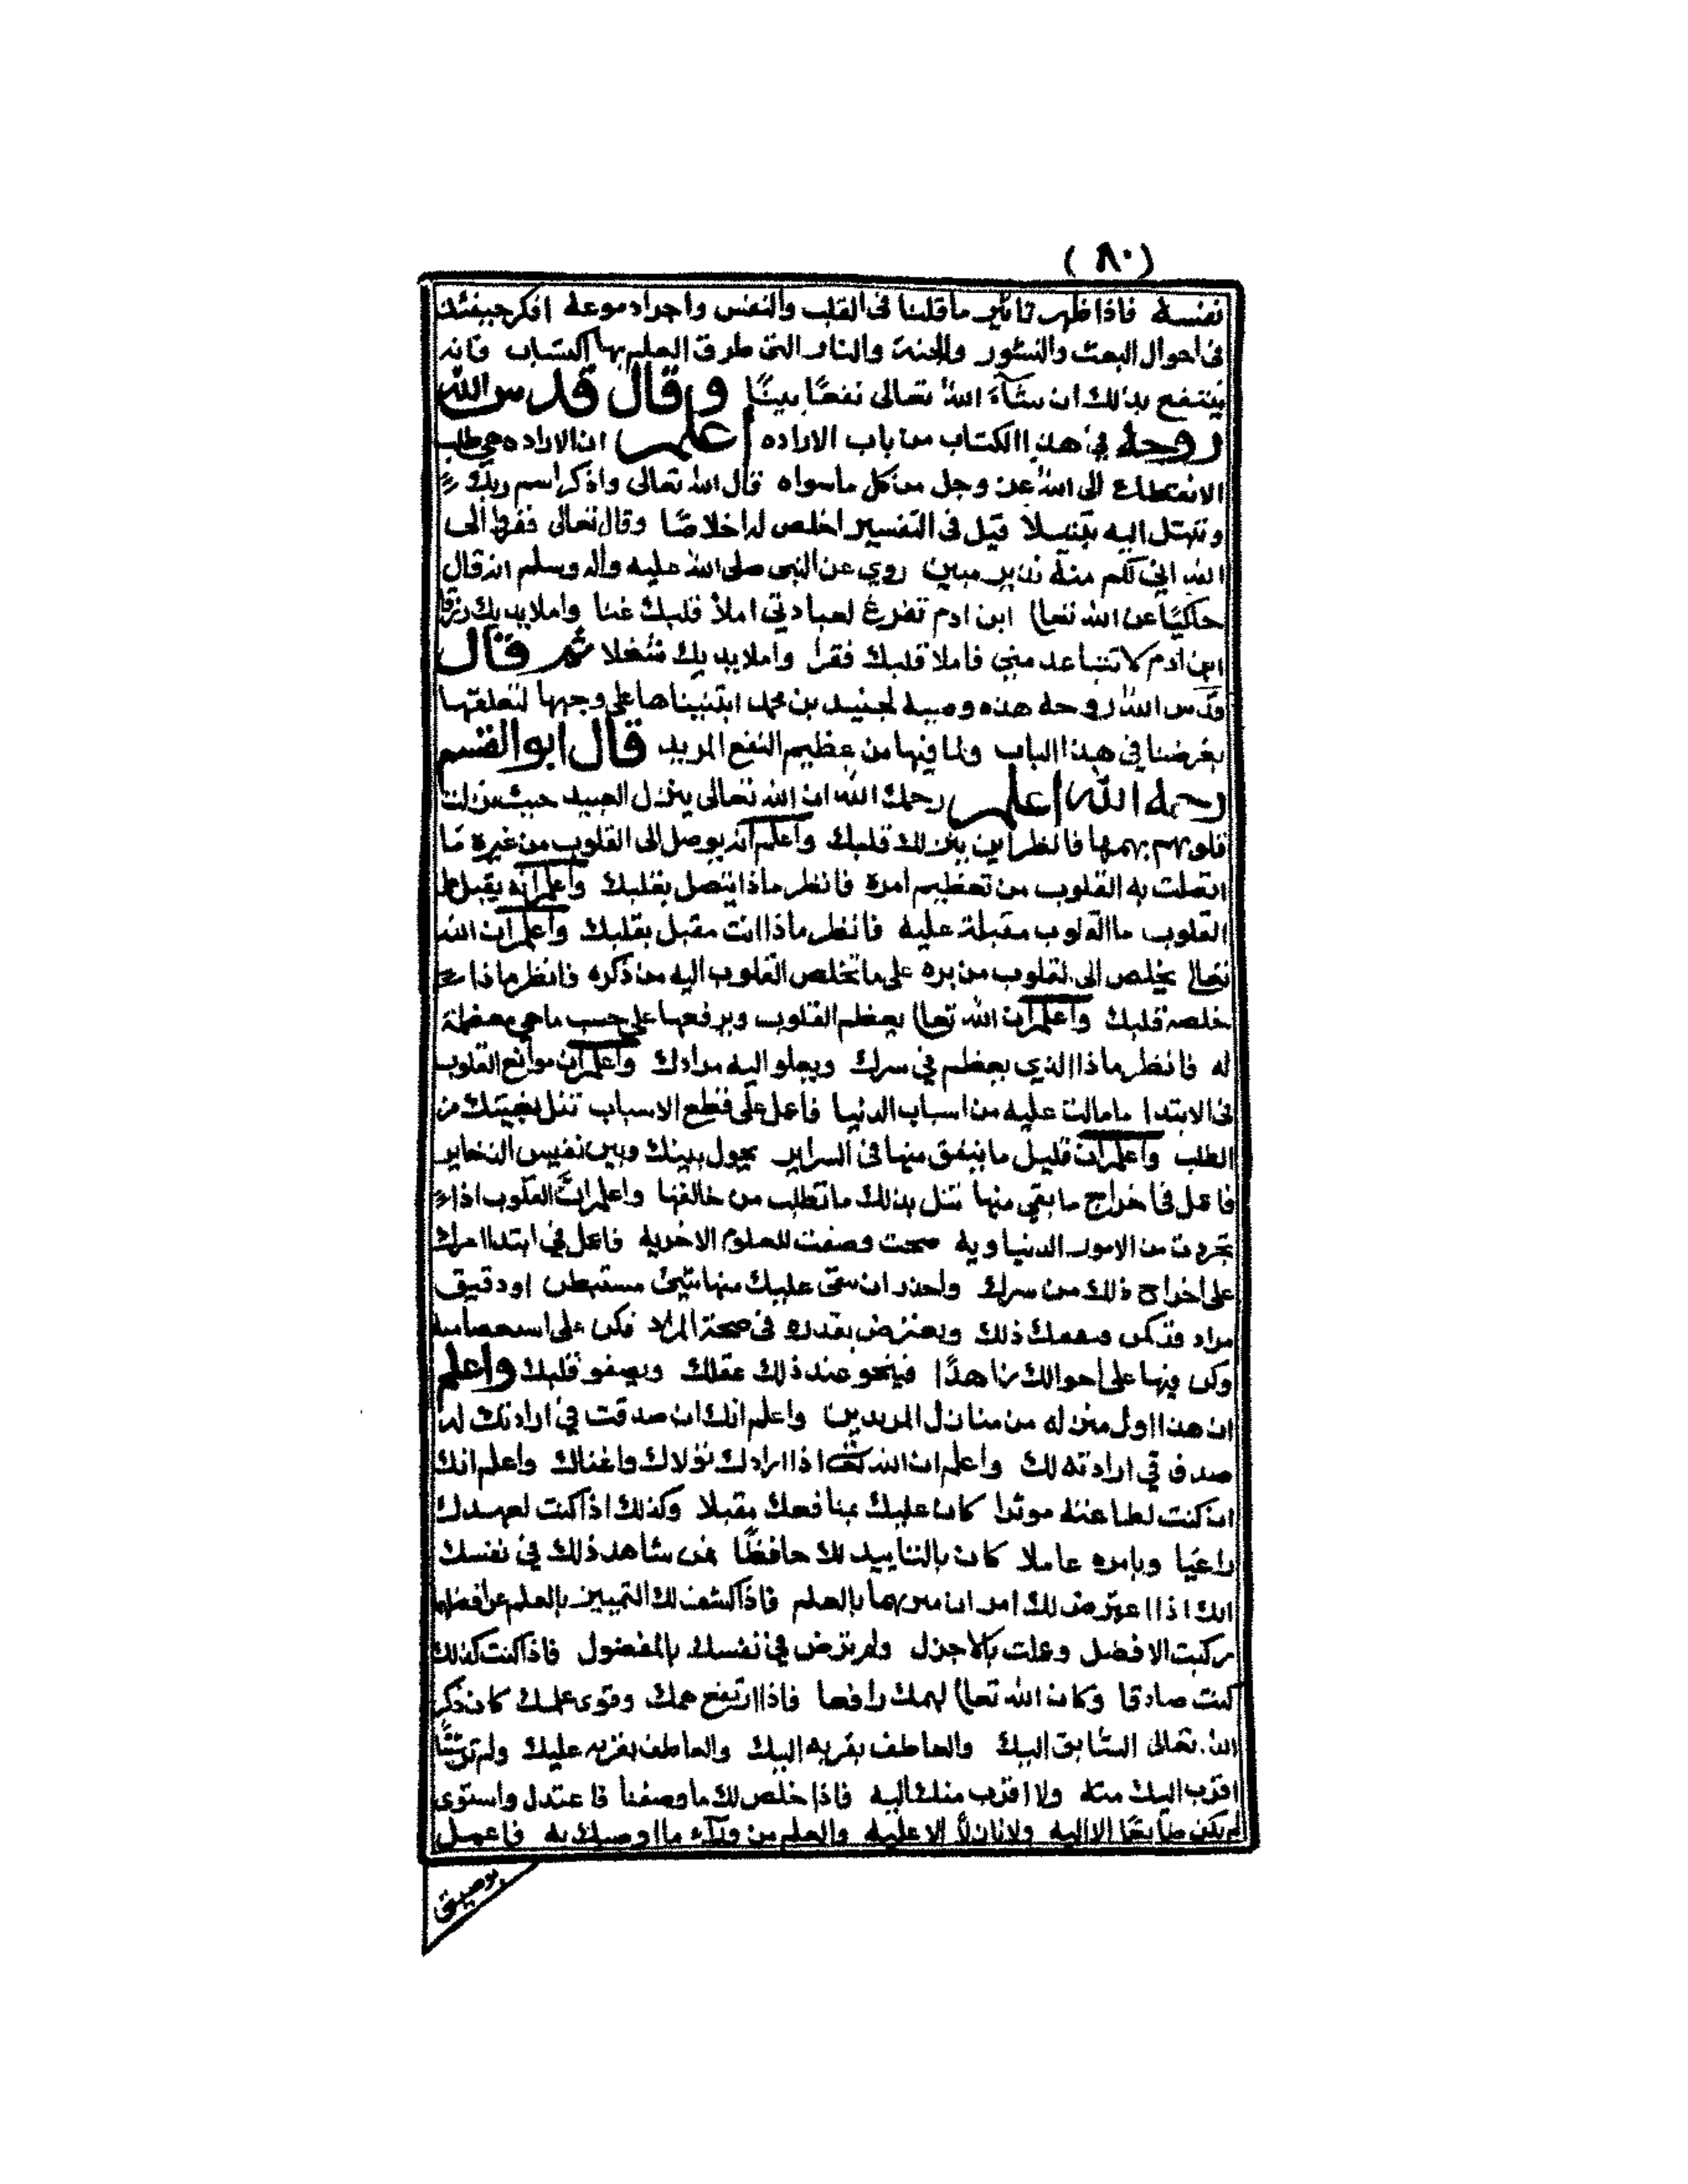 (٨٠)
نفسه فاذا ظهر تاثير ما قلنا في القلب والنفس واجراد موعه افكر حينئذ
في احوال البعث والنشور والجنة والنار التي طرق العلم بها الكتاب فانه
ينتفع بذلك ان شآء الله تعالى نفعًا بينًا وقال قدس الله
روحه في هذا الكتاب من باب الاراده اعلم ان الاراده هي طلب
الانقطاع الى الله عز وجل من كل ما سواه قال الله تعالى واذكر اسم ربك
وتبتل اليه تبتيلا قيل في التفسير اخلص له اخلاصًا وقال تعالى ففروا الى
الله اني لكم منه نذير مبين روي عن النبي صلى الله عليه واله وسلم انه قال
حاكيًا عن الله تعا ابن ادم تفرغ لعبادتي املأ قلبك غنا واملا يديك رزقا
ابن ادم لا تتباعد مني فاملا قلبك فقرا واملا يديك شغلا ثم قال
قدّس الله روحه هذه وصية لجنيد بن محمد اثبتناها على وجهها لتعلقها
بغرضنا في هذا الباب ولما فيها من عظيم النفع المريد قال ابو القسم
رحمه الله اعلم رحمك الله ان الله تعالى ينزل العبيد حيث نزلت
قلوبهم بهممها فانظر اين ينزلك قلبك واعلم انه يوصل الى القلوب من غيره ما
اتصلت به القلوب من تعظيم امره فانظر ماذا يتصل بقلبك واعلم انه يقبل على
القلوب ما القلوب مقبلة عليه فانظر ماذا انت مقبل بقلبك واعلم ان الله
تعالى يخلص الى لقلوب من بره على ما تخلص القلوب اليه من ذكره فانظر ماذا
خلصه قلبك واعلم ان الله تعا يعظم القلوب ويرفعها على حسب ما هي معظمة
له فانظر ماذا الذي يعظم في سرك ويعلو اليه مرادك واعلم ان موانع القلوب
في الابتدا ما مالت عليه من اسباب الدنيا فاعمل على قطع الاسباب تنل بغيتك من
الطلب واعلم ان قليل ما يبقى منها في السراير يحول بينك وبين نفيس الذخاير
فاعمل في اخراج ما بقي منها تنل بذلك ما تطلب من خالقها واعلم انّ القلوب اذا
تجردت من الامور الدنياويه صحت وصفت للعلوم الاخرويه فاعمل في ابتدا امرك
على اخراج ذلك من سرك واحذر ان يبقى عليك منها شيئ مستبطن او دقيق
مراد ذلك ويعترض بقدره في صحة المراد فكن على
وكن فيها على احوالك زاهدًا فينحو عند ذلك عقلك ويصفو قلبك واعلم
ان هذا اول منزله من منازل المريدين واعلم انك ان صدقت في ارادتك له
صدق في ارادته لك واعلم ان الله تعا اذا ارادك تولاك واغناك واعلم انك
ان كنت لطاعته موثرا كان عليك بمنافعك مقبلا وكذلك اذا كنت لعهدك
راعيا وبامره عاملا كان بالتاييد لك حافظًا فمن شاهد ذلك في نفسك
انك اذا اعترض لك امران ميزيهما بالعلم فاذا كشف لك التمييز بالعلم عن افضلهما
ركبت الافضل وعملت بالاجزل ولم ترض في نفسك بالمفضول فاذا كنت كذلك
كنت صادقا وكان الله تعا لهمك رافعا فاذا ارتفع همك وقوى عملك كان ذكر
الله تعالى السّابق اليك والعاطف بقربه اليك والعاطف بعزبه عليك ولم تر شيئًا
اقرب اليك منه ولا اقرب منك اليه فاذا خلص لك ما وصفنا فاعتدل واستوى
لم يكن الا اليه ولا نازلًا الا عليه والعلم من ورآء ما اوصيك به فاعمل
بوصيتي